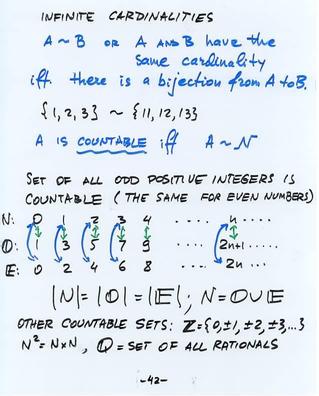 INFINITE CARDINALITIES
A ~ B OR A AND B have the
same cardinality
iff. there is a bijection from A to B.
{1, 2, 3} ~ {11, 12, 13}
A IS COUNTABLE iff A ~ N
SET OF ALL ODD POSITIVE INTEGERS IS
COUNTABLE (THE SAME FOR EVEN NUMBERS)
N: 0 1 2 3 4 .... n ....
O: 1 3 5 7 9 .... 2n+1 .....
E: 0 2 4 6 8 .... 2n ...
|N| = |O| = |E| ; N = O ∪ E
OTHER COUNTABLE SETS: Z = {0, ±1, ±2, ±3, ...}
N² = N×N , Q = SET OF ALL RATIONALS
-42-